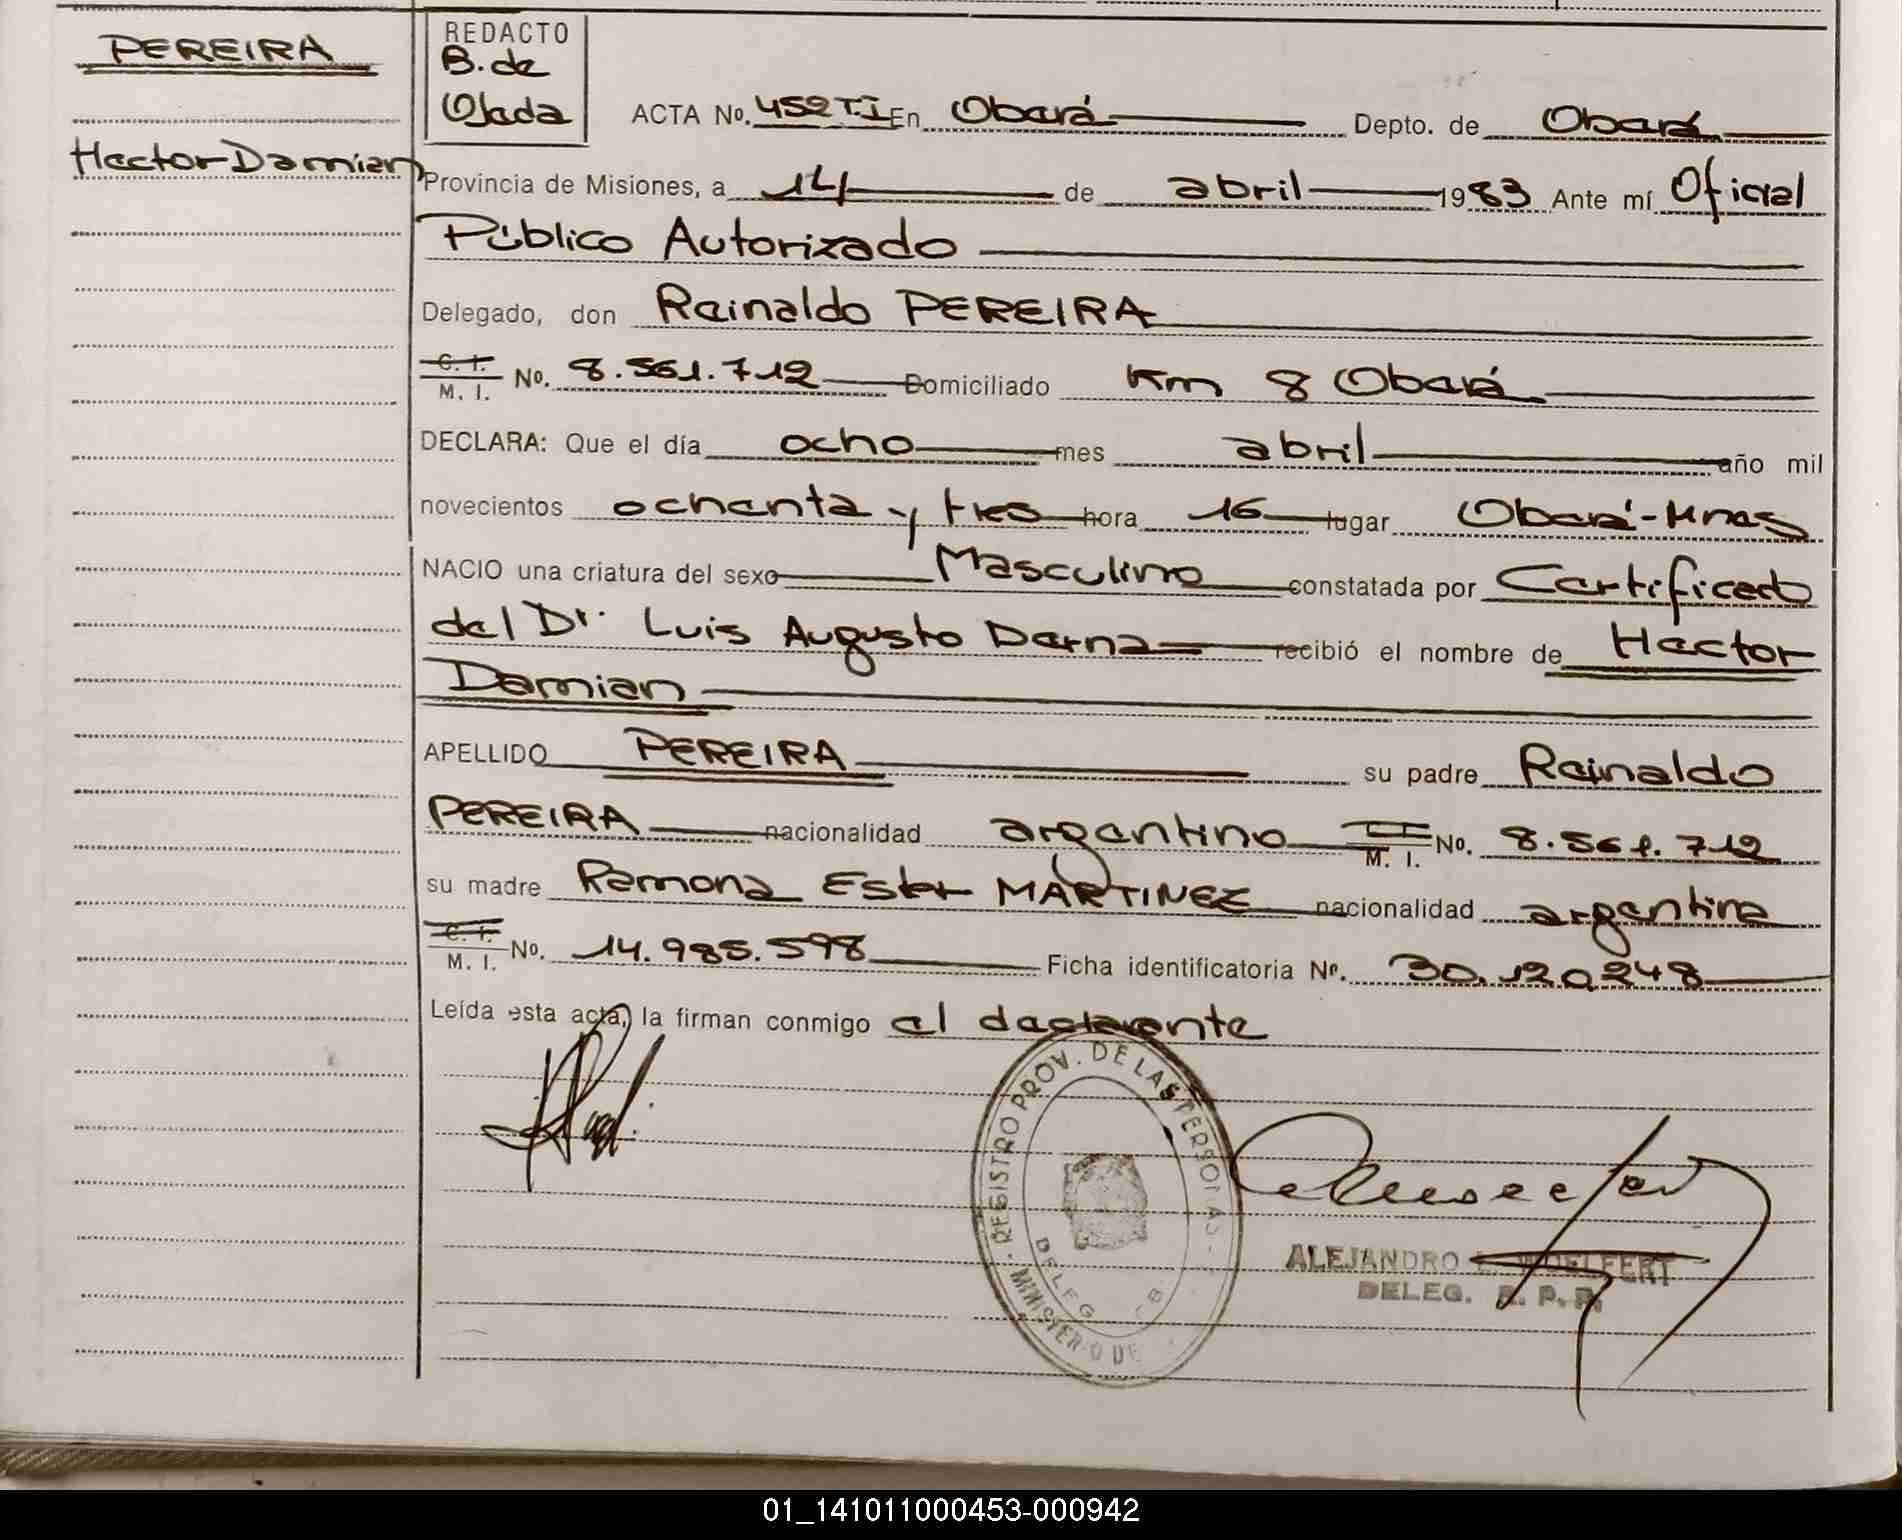 PEREIRA
Hector Damian
REDACTO
B. de
Ojeda
ACTA No. 452 T.I En Oberá Depto. de Oberá
Provincia de Misiones, a 14 de abril 1983 Ante mí Oficial
Público Autorizado
Delegado, don Reinaldo PEREIRA
C. I.
M. I. No. 8.561.712 Domiciliado Km 8 Oberá
DECLARA: Que el día ocho mes abril año mil
novecientos ochenta y tres hora 16 lugar Oberá-Mnes
NACIO una criatura del sexo Masculino constatada por Certificado
del Dr. Luis Augusto Derna recibió el nombre de Hector
Damian
APELLIDO PEREIRA su padre Reinaldo
PEREIRA nacionalidad argentino C. I. M. I. No. 8.561.712
su madre Ramona Ester MARTINEZ nacionalidad argentina
C. I.
M. I. No. 14.985.598 Ficha identificatoria Nº. 30.120.248
Leída esta acta, la firman conmigo el declarente
REGISTRO PROV. DE LAS PERSONAS
DELEG
MINISTERIO DE
ALEJANDRO WOELFERT
DELEG. R. P. P.
01_141011000453-000942